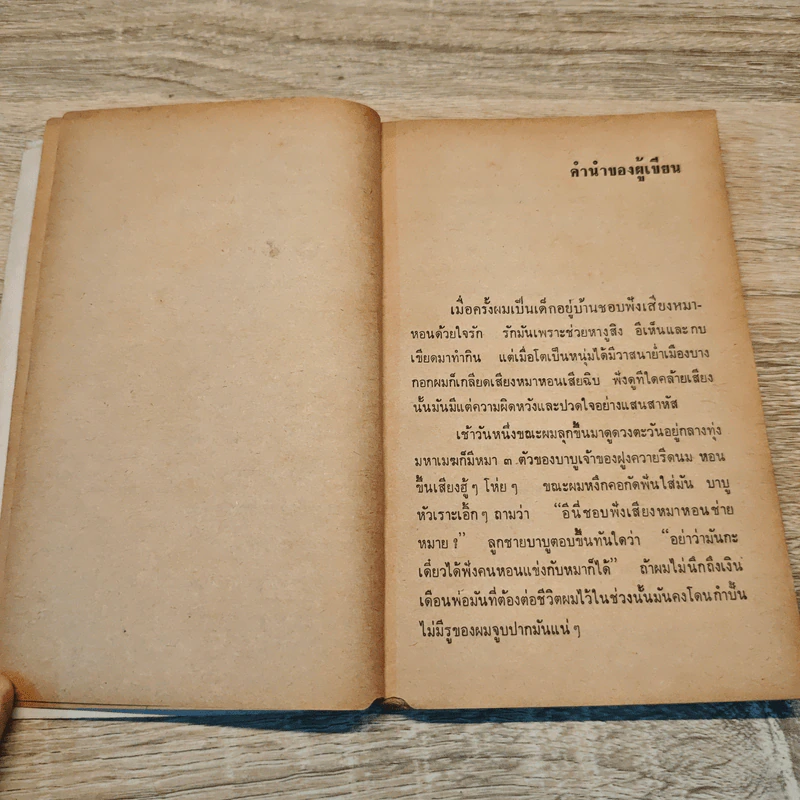 คำนำของผู้เขียน
เมื่อครั้งผมเป็นเด็กอยู่บ้านชอบฟังเสียงหมา-
หอนด้วยใจรัก รักมันเพราะช่วยหางูสิง อีเห็นและกบ
เขียดมาทำกิน แต่เมื่อโตเป็นหนุ่มได้มีวาสนาย่ำเมืองบาง
กอกผมก็เกลียดเสียงหมาหอนเสียฉิบ ฟังดูทีใดคล้ายเสียง
นั้นมันมีแต่ความผิดหวังและปวดใจอย่างแสนสาหัส
เช้าวันหนึ่งขณะผมลุกขึ้นมาดูดวงตะวันอยู่กลางทุ่ง
มหาเมฆก็มีหมา ๓ ตัวของบาบูเจ้าของฝูงควายรีดนม หอน
ขึ้นเสียงฮู้ ๆ โห่ย ๆ ขณะผมหงิกคอกัดฟันใส่มัน บาบู
หัวเราะเอิ๊ก ๆ ถามว่า “อีนี่ชอบฟังเสียงหมาหอนช่าย
หมาย ?” ลูกชายบาบูตอบขึ้นทันใดว่า “อย่าว่ามันกะ
เดี๋ยวได้ฟังคนหอนแข่งกับหมาก็ได้” ถ้าผมไม่นึกถึงเงิน
เดือนพ่อมันที่ต้องต่อชีวิตผมไว้ในช่วงนั้นมันคงโดนกำปั้น
ไม่มีรูของผมจูบปากมันแน่ ๆ